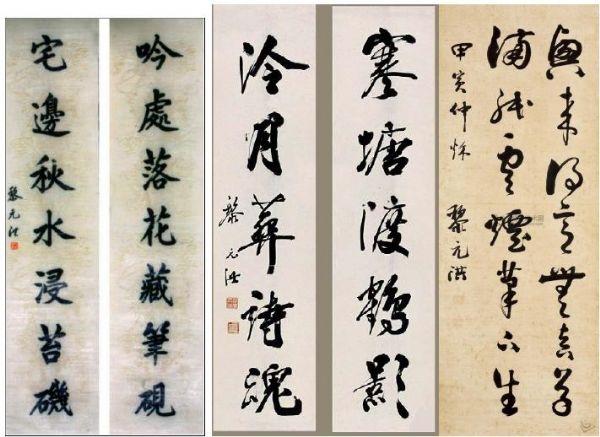 興來得意無真草
滿紙雲煙筆下生
甲寅仲秋 黎元洪
寒塘渡鶴影
冷月葬詩魂
黎元洪
吟處落花藏筆硯
宅邊秋水浸苔磯
黎元洪